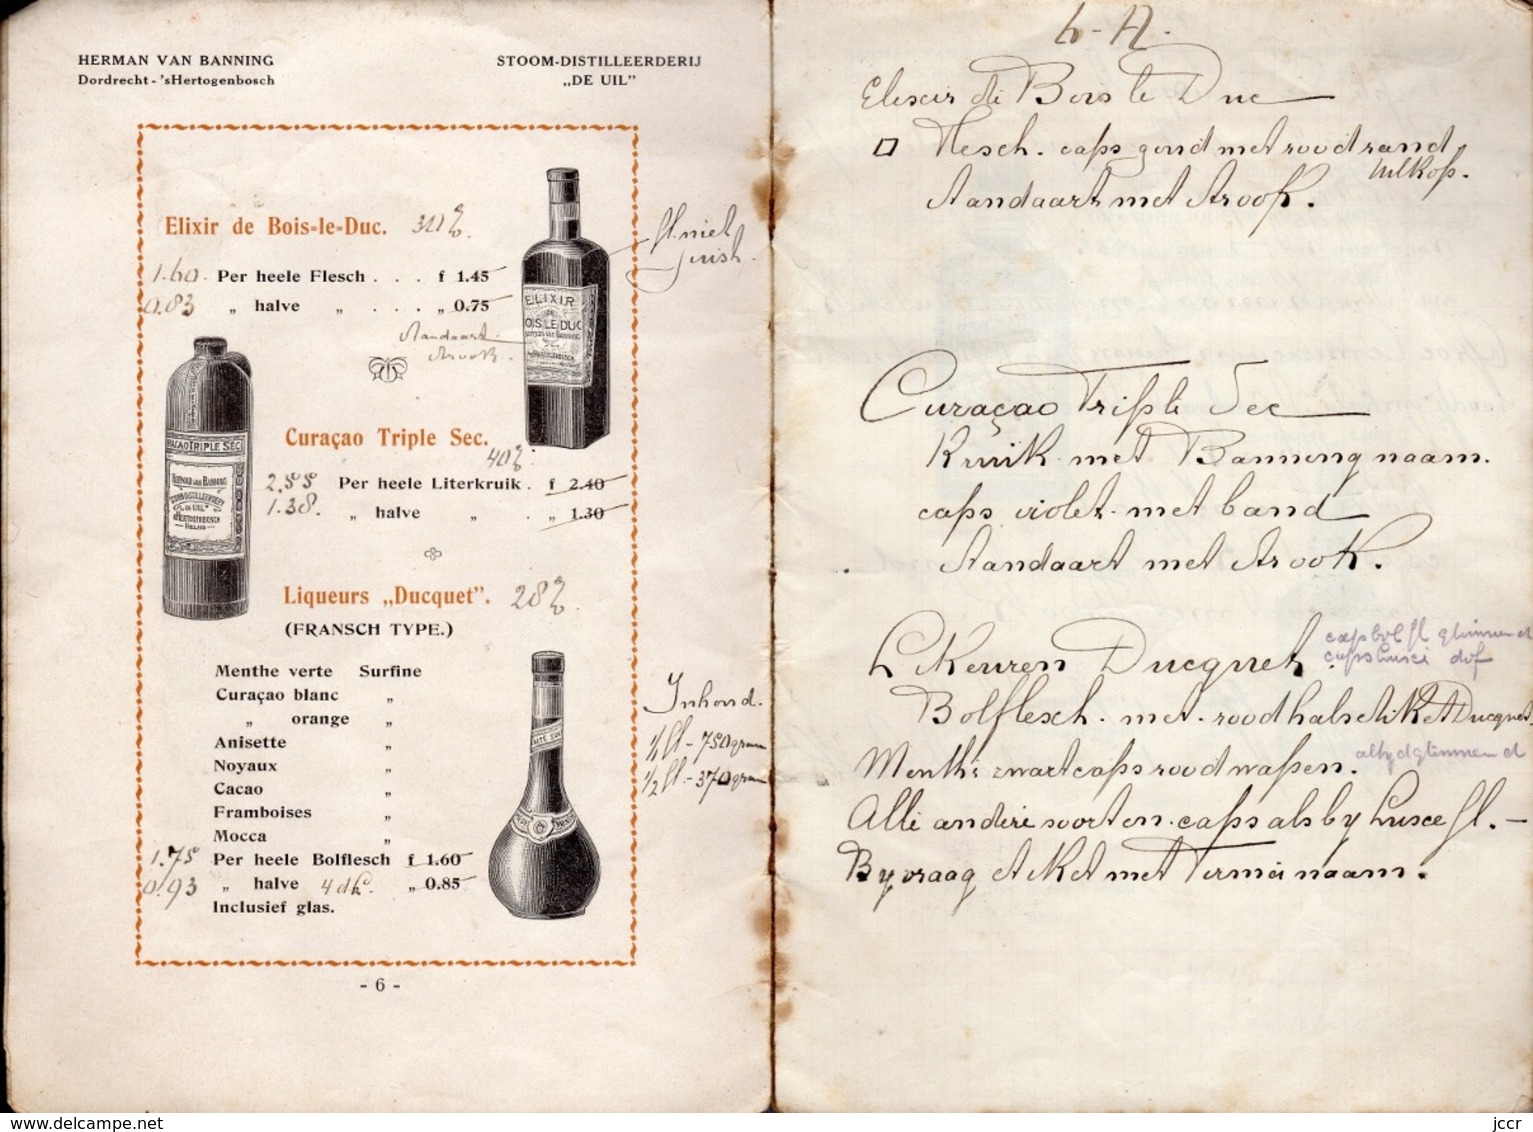 HERMAN VAN BANNING
Dordrecht - 'sHertogenbosch
STOOM-DISTILLEERDERIJ
„DE UIL”
Elixir de Bois=le=Duc.
1.60 Per heele Flesch . . . f 1.45
0.83 „ halve „ . . . „ 0.75
Standaart
strook.
fl. niet
juist.
ELIXIR
DE
BOIS LE DUC
Curaçao Triple Sec.
40%
2.55 Per heele Literkruik . f 2.40
1.38. „ halve „ . „ 1.30
CURAÇAO TRIPLE SEC
HERMAN VAN BANNING
STOOMDISTILLEERDERY
„DE UIL”
'sHERTOGENBOSCH
HOLLAND
Liqueurs „Ducquet”. 28%
(FRANSCH TYPE.)
Menthe verte Surfine
Curaçao blanc „
„ orange „
Anisette „
Noyaux „
Cacao „
Framboises „
Mocca „
1.75 Per heele Bolflesch f 1.60
0.93 „ halve 4 d „ 0.85
Inclusief glas.
Inhoud.
1/1 fl - 750 gram
1/2 fl - 370 gram
- 6 -
Elixer de Bois le Duc
Flesch. caps goud met rood rand
uilkop.
Standaart met strook.
Curaçao Triple Sec
Kruik met Banning naam.
caps violet met band
Standaart met strook.
Likeuren Ducquet
caps bol fl glimmend
caps Lusce dof
Bolflesch. met rood halsetiket Ducquet
Menthe zwart caps rood wapen.
altyd glimmend
Alle andere soorten caps als by Lusce fl. -
By vraag etiket met Firma naam.
jccr